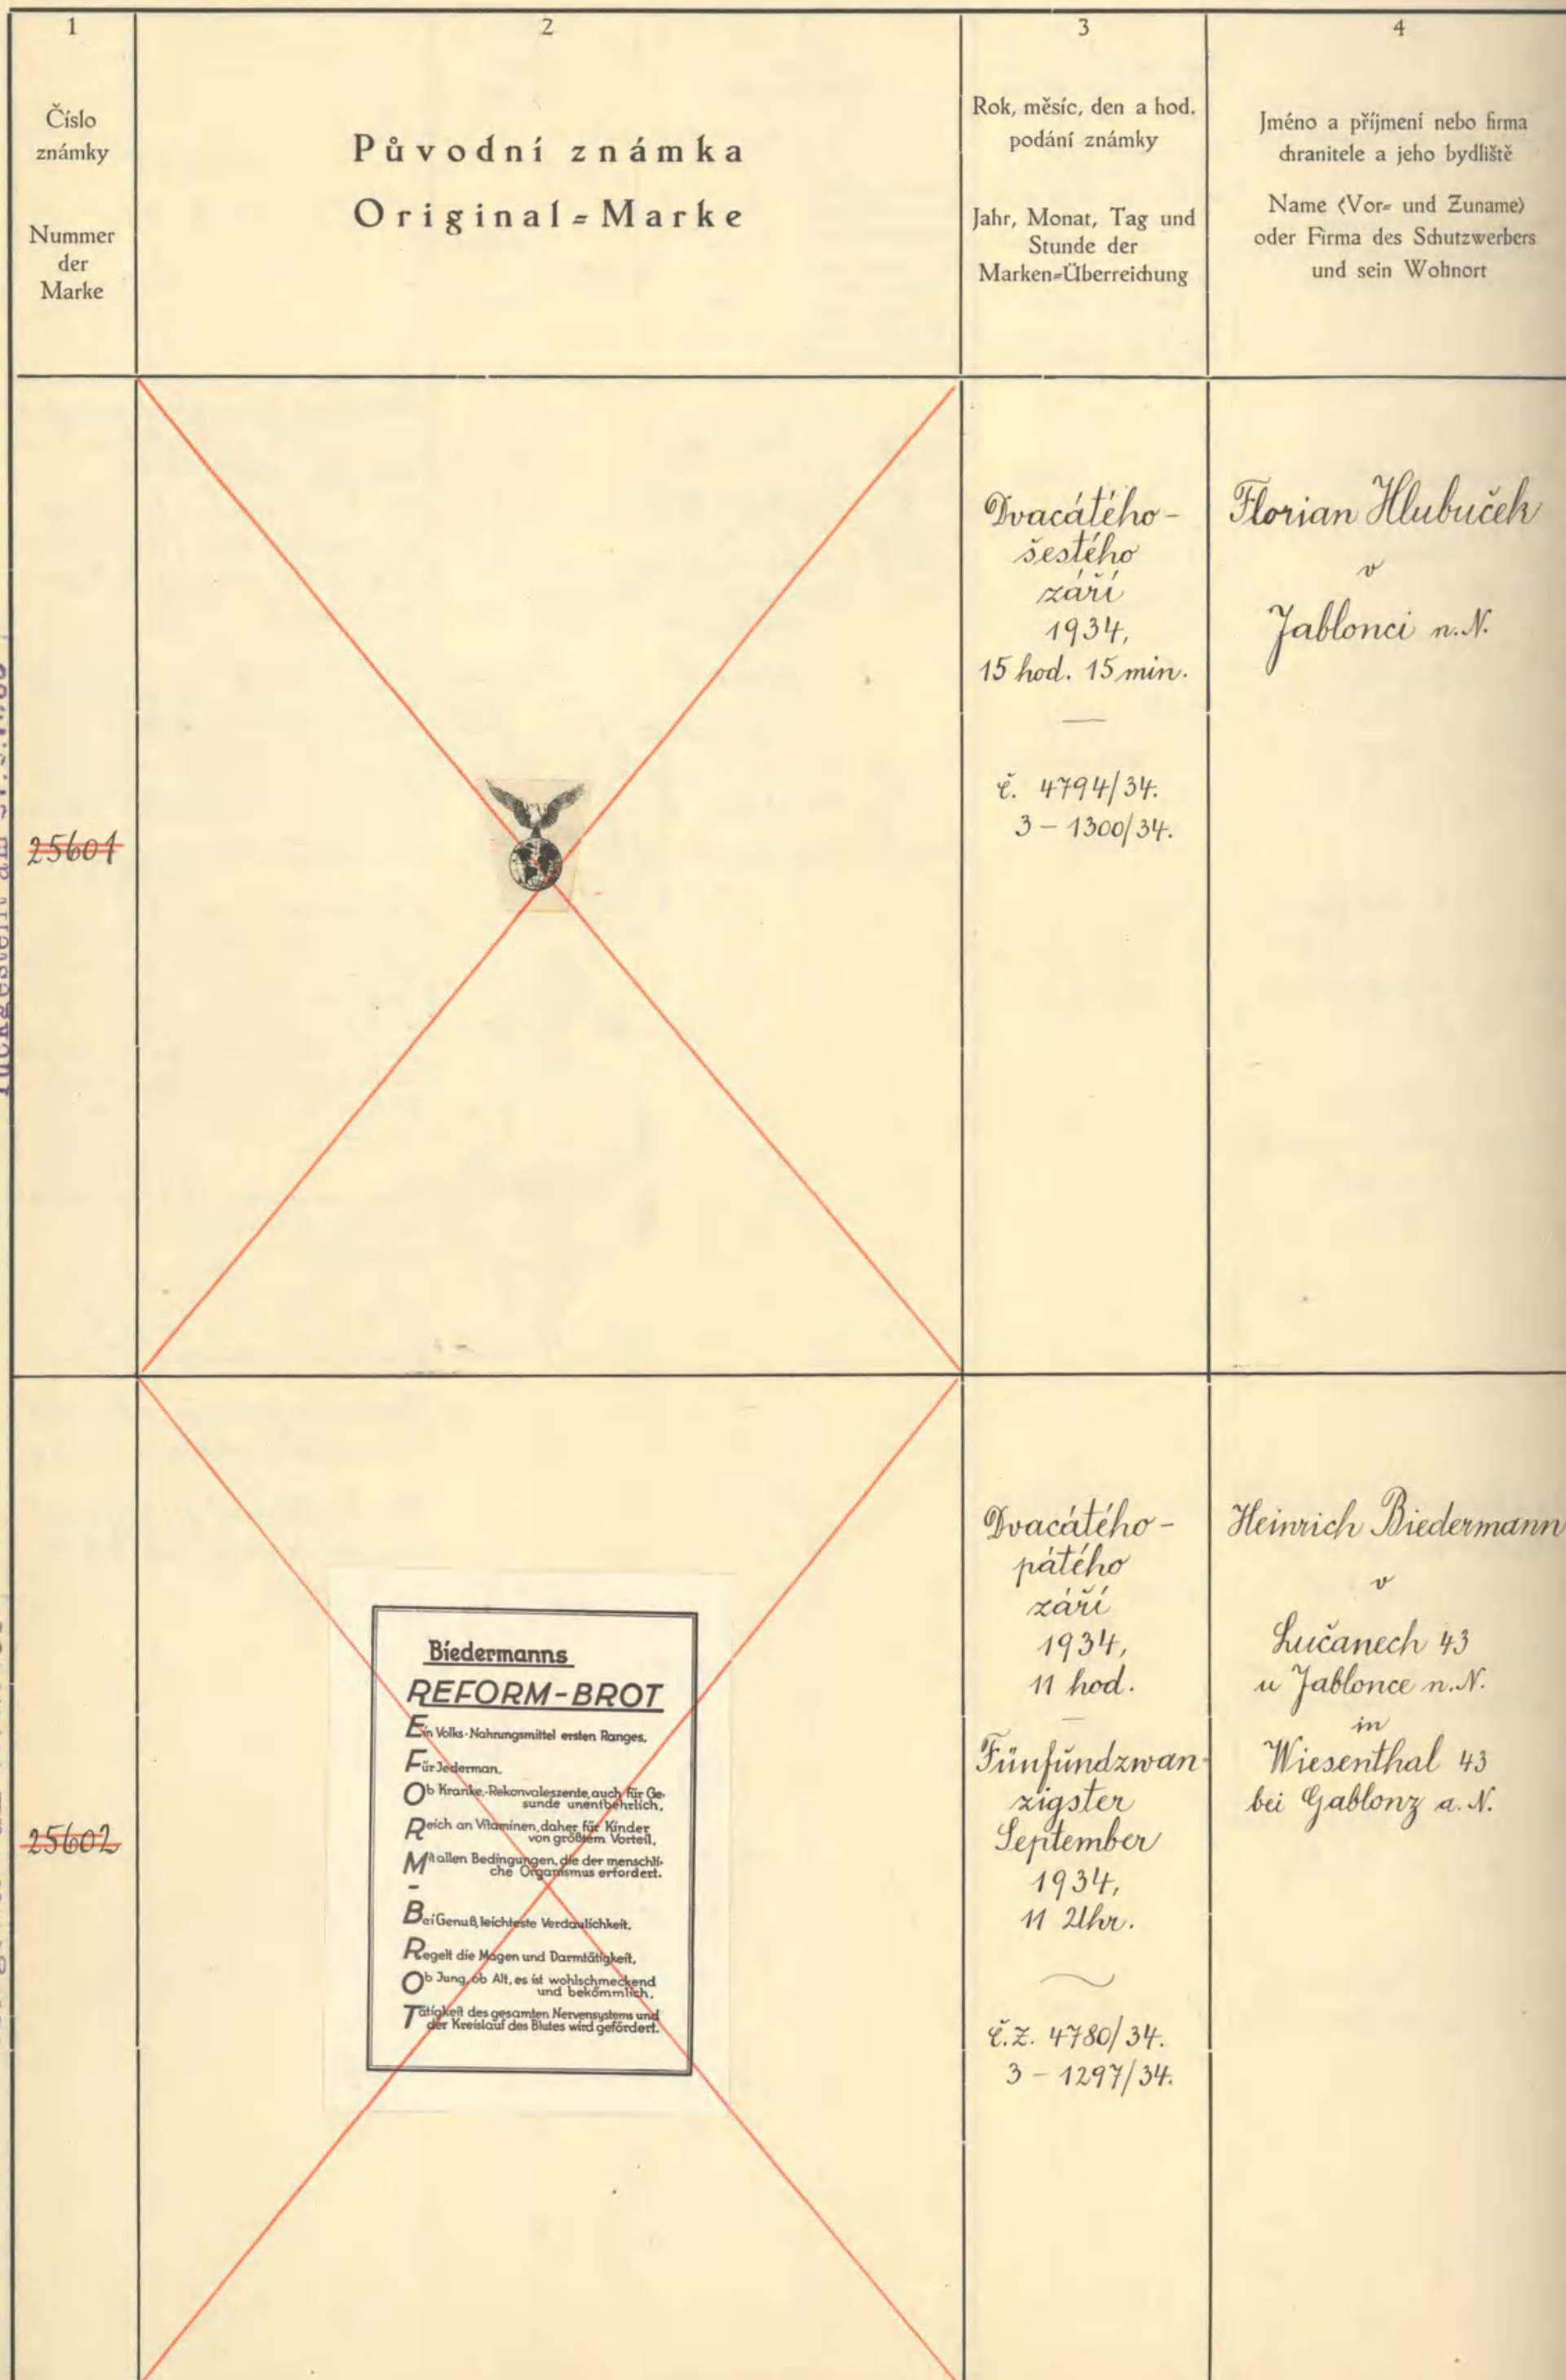 1
Číslo
známky
Nummer
der
Marke
2
Původní známka
Original=Marke
3
Rok, měsíc, den a hod.
podání známky
Jahr, Monat, Tag und
Stunde der
Marken=Überreichung
4
Jméno a příjmení nebo firma
chranitele a jeho bydliště
Name (Vor= und Zuname)
oder Firma des Schutzwerbers
und sein Wohnort
25601
Dvacátého-
šestého
září
1934,
15 hod. 15 min.
č. 4794/34.
3 – 1300/34.
Florian Hlubuček
v
Jablonci n. N.
25602
Biedermanns
REFORM-BROT
Ein Volks-Nahrungsmittel ersten Ranges.
Für Jederman.
Ob Kranke-Rekonvaleszente, auch für Ge-
sunde unentbehrlich.
Reich an Vitaminen, daher für Kinder
von größtem Vorteil.
Mit allen Bedingungen, die der menschli-
che Organismus erfordert.
-
Bei Genuß, leichteste Verdaulichkeit.
Regelt die Magen und Darmtätigkeit.
Ob Jung, ob Alt, es ist wohlschmeckend
und bekömmlich.
Tätigkeit des gesamten Nervensystems und
der Kreislauf des Blutes wird gefördert.
Dvacátého-
pátého
září
1934,
11 hod.
Fünfundzwan-
zigster
September
1934,
11 Uhr.
č.z. 4780/34.
3 – 1297/34.
Heinrich Biedermann
v
Lučanech 43
u Jablonce n. N.
in
Wiesenthal 43
bei Gablonz a. N.